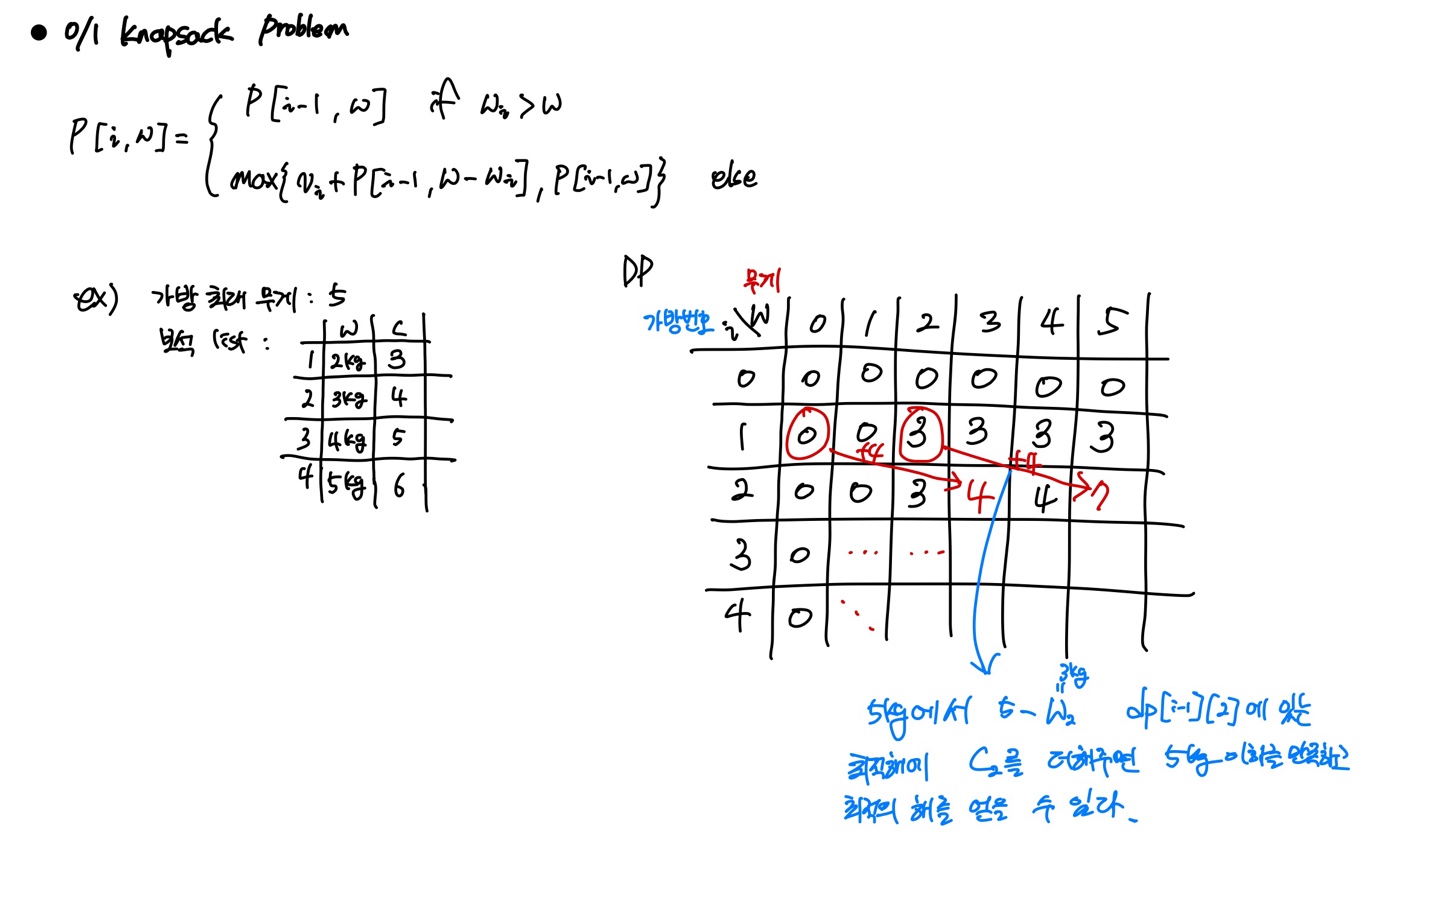 ● 0/1 Knapsack Problem
P[i,w] = { P[i-1, w] if wᵢ > w
max{ vᵢ + P[i-1, w - wᵢ], P[i-1, w] } else
ex) 가방 최대 무게 : 5
보석 list :
W C
1 2kg 3
2 3kg 4
3 4kg 5
4 5kg 6
DP
무게
가방번호 i\W 0 1 2 3 4 5
0 0 0 0 0 0 0
1 0 0 3 3 3 3
+4 +4
2 0 0 3 4 4 7
3 0 ... ...
4 0 ...
3kg
"
5kg에서 5 - W₂ dp[i-1][2]에 있는
최적해에 C₂를 더해주면 5kg 이하를 만족하고
최적의 해를 얻을 수 있다.